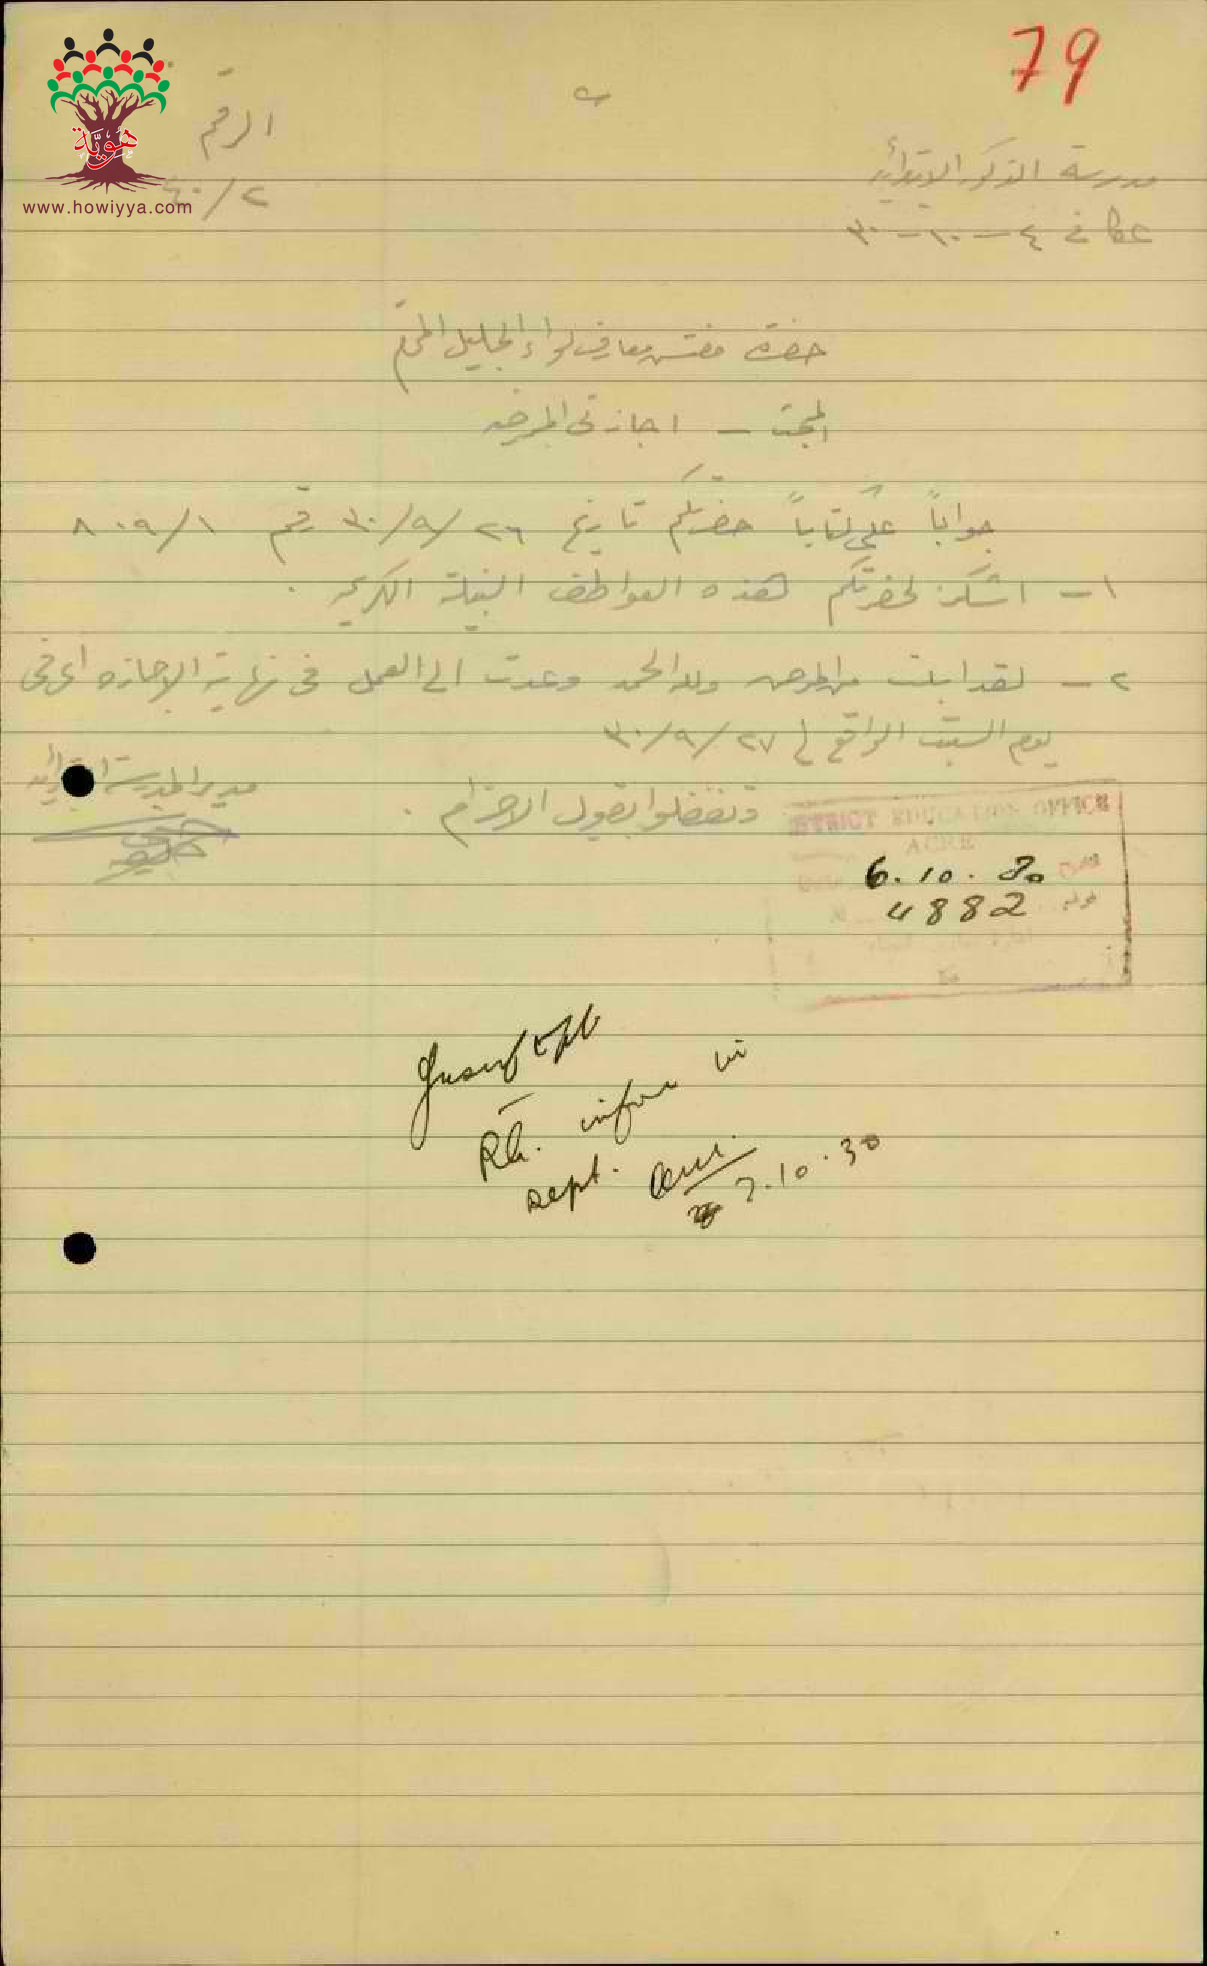 79
هوية
www.howiyya.com
الرقم
٤٠/٢
مدرسة الذكور الابتدائية
عكا في ٤ – ١٠ – ٣٠
حضرة مفتش معارف لواء الجليل المحترم
المبحث – اجازتي المرضية
جواباً على كتاب حضرتكم تاريخ ٢٦/٩/٣٠ رقم ٨٠٩/١
١ – اشكر لحضرتكم هذه العواطف النبيلة الكريمة .
٢ – لقد ابللت من المرض ولله الحمد وعدت الى العمل في نهاية الاجازه اي في
يوم السبت الواقع في ٢٧/٩/٣٠
وتفضلوا بقبول الاحترام .
مدير المدرسة الابتدائية
DISTRICT EDUCATION OFFICE
ACRE
6.10.30
4882
Yusuf Eff
inform in
sept.
7.10.30